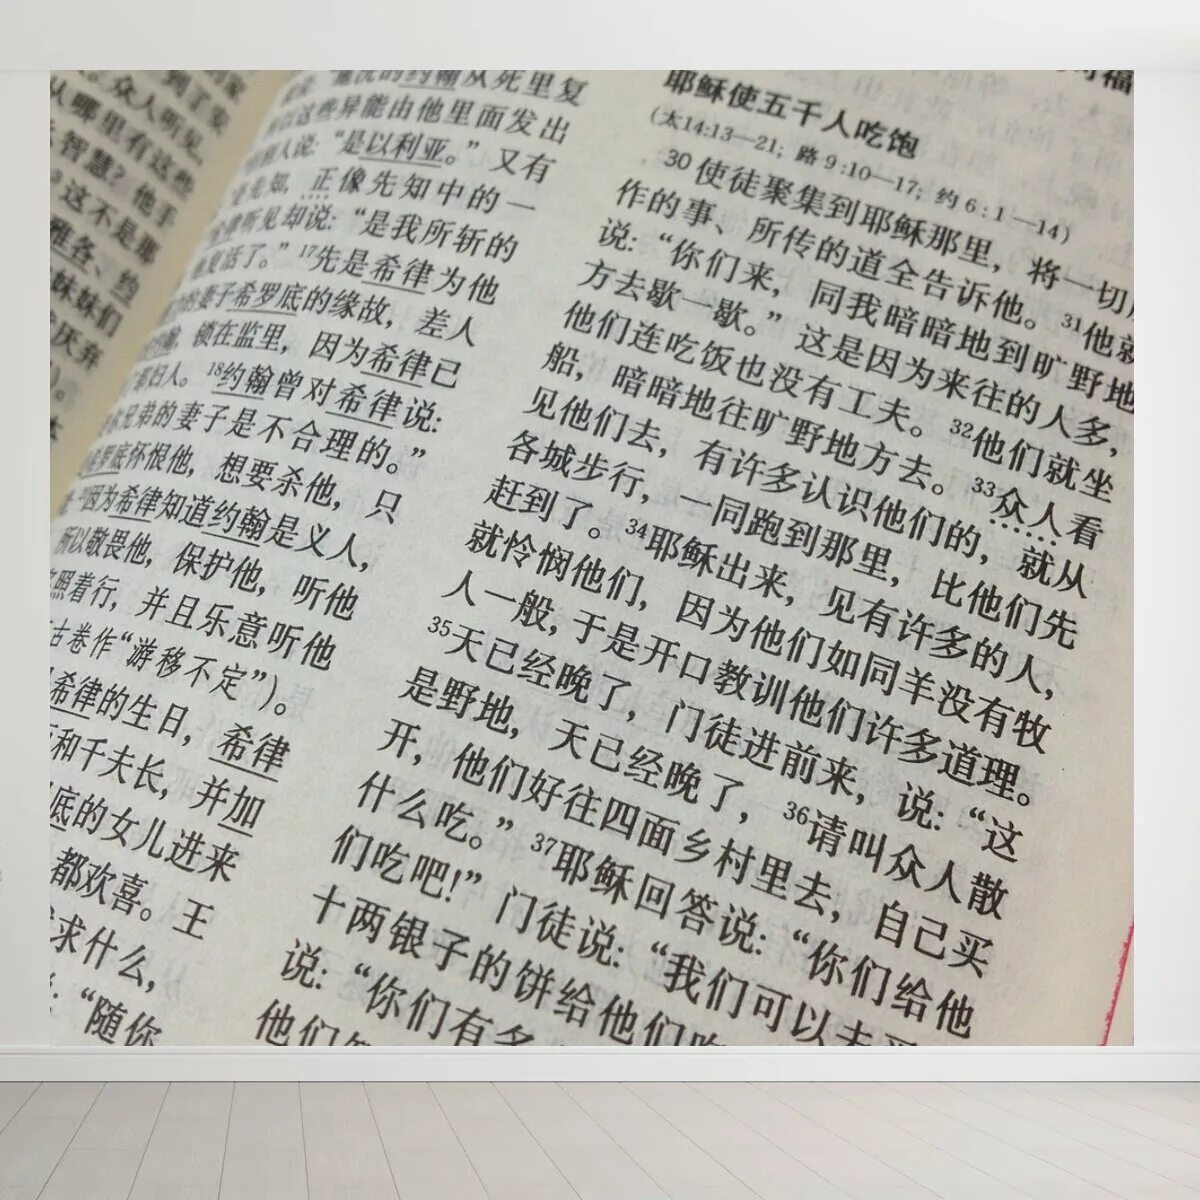 到了安
众人听见,
从哪里有这些
智慧?他手
这不是耶
雅各、约
妹妹们
厌弃
施洗的约翰从死里复
所以这些异能由他里面发出
别人说:“是以利亚。”又有
是先知,正像先知中的一
希律听见却说:“是我所斩的
复活了。”17先是希律为他
的妻子希罗底的缘故,差人
锁在监里,因为希律已
那妇人。18约翰曾对希律说:
你兄弟的妻子是不合理的。”
希罗底怀恨他,想要杀他,只
因为希律知道约翰是义人,
所以敬畏他,保护他,听他
照着行,并且乐意听他
古卷作“游移不定”)。
希律的生日,希律
和千夫长,并加
底的女儿进来
都欢喜。王
求什么,
“随你
耶稣使五千人吃饱
(太14:13—21;路9:10—17;约6:1—14)
30使徒聚集到耶稣那里,将一切所
作的事、所传的道全告诉他。31他就
说:“你们来,同我暗暗地到旷野地
方去歇一歇。”这是因为来往的人多,
他们连吃饭也没有工夫。32他们就坐
船,暗暗地往旷野地方去。33众人看
见他们去,有许多认识他们的,就从
各城步行,一同跑到那里,比他们先
赶到了。34耶稣出来,见有许多的人,
就怜悯他们,因为他们如同羊没有牧
人一般,于是开口教训他们许多道理。
35天已经晚了,门徒进前来,说:“这
是野地,天已经晚了,36请叫众人散
开,他们好往四面乡村里去,自己买
什么吃。”37耶稣回答说:“你们给他
们吃吧!”门徒说:“我们可以去买
十两银子的饼给他们吃
说:“你们有多
他们